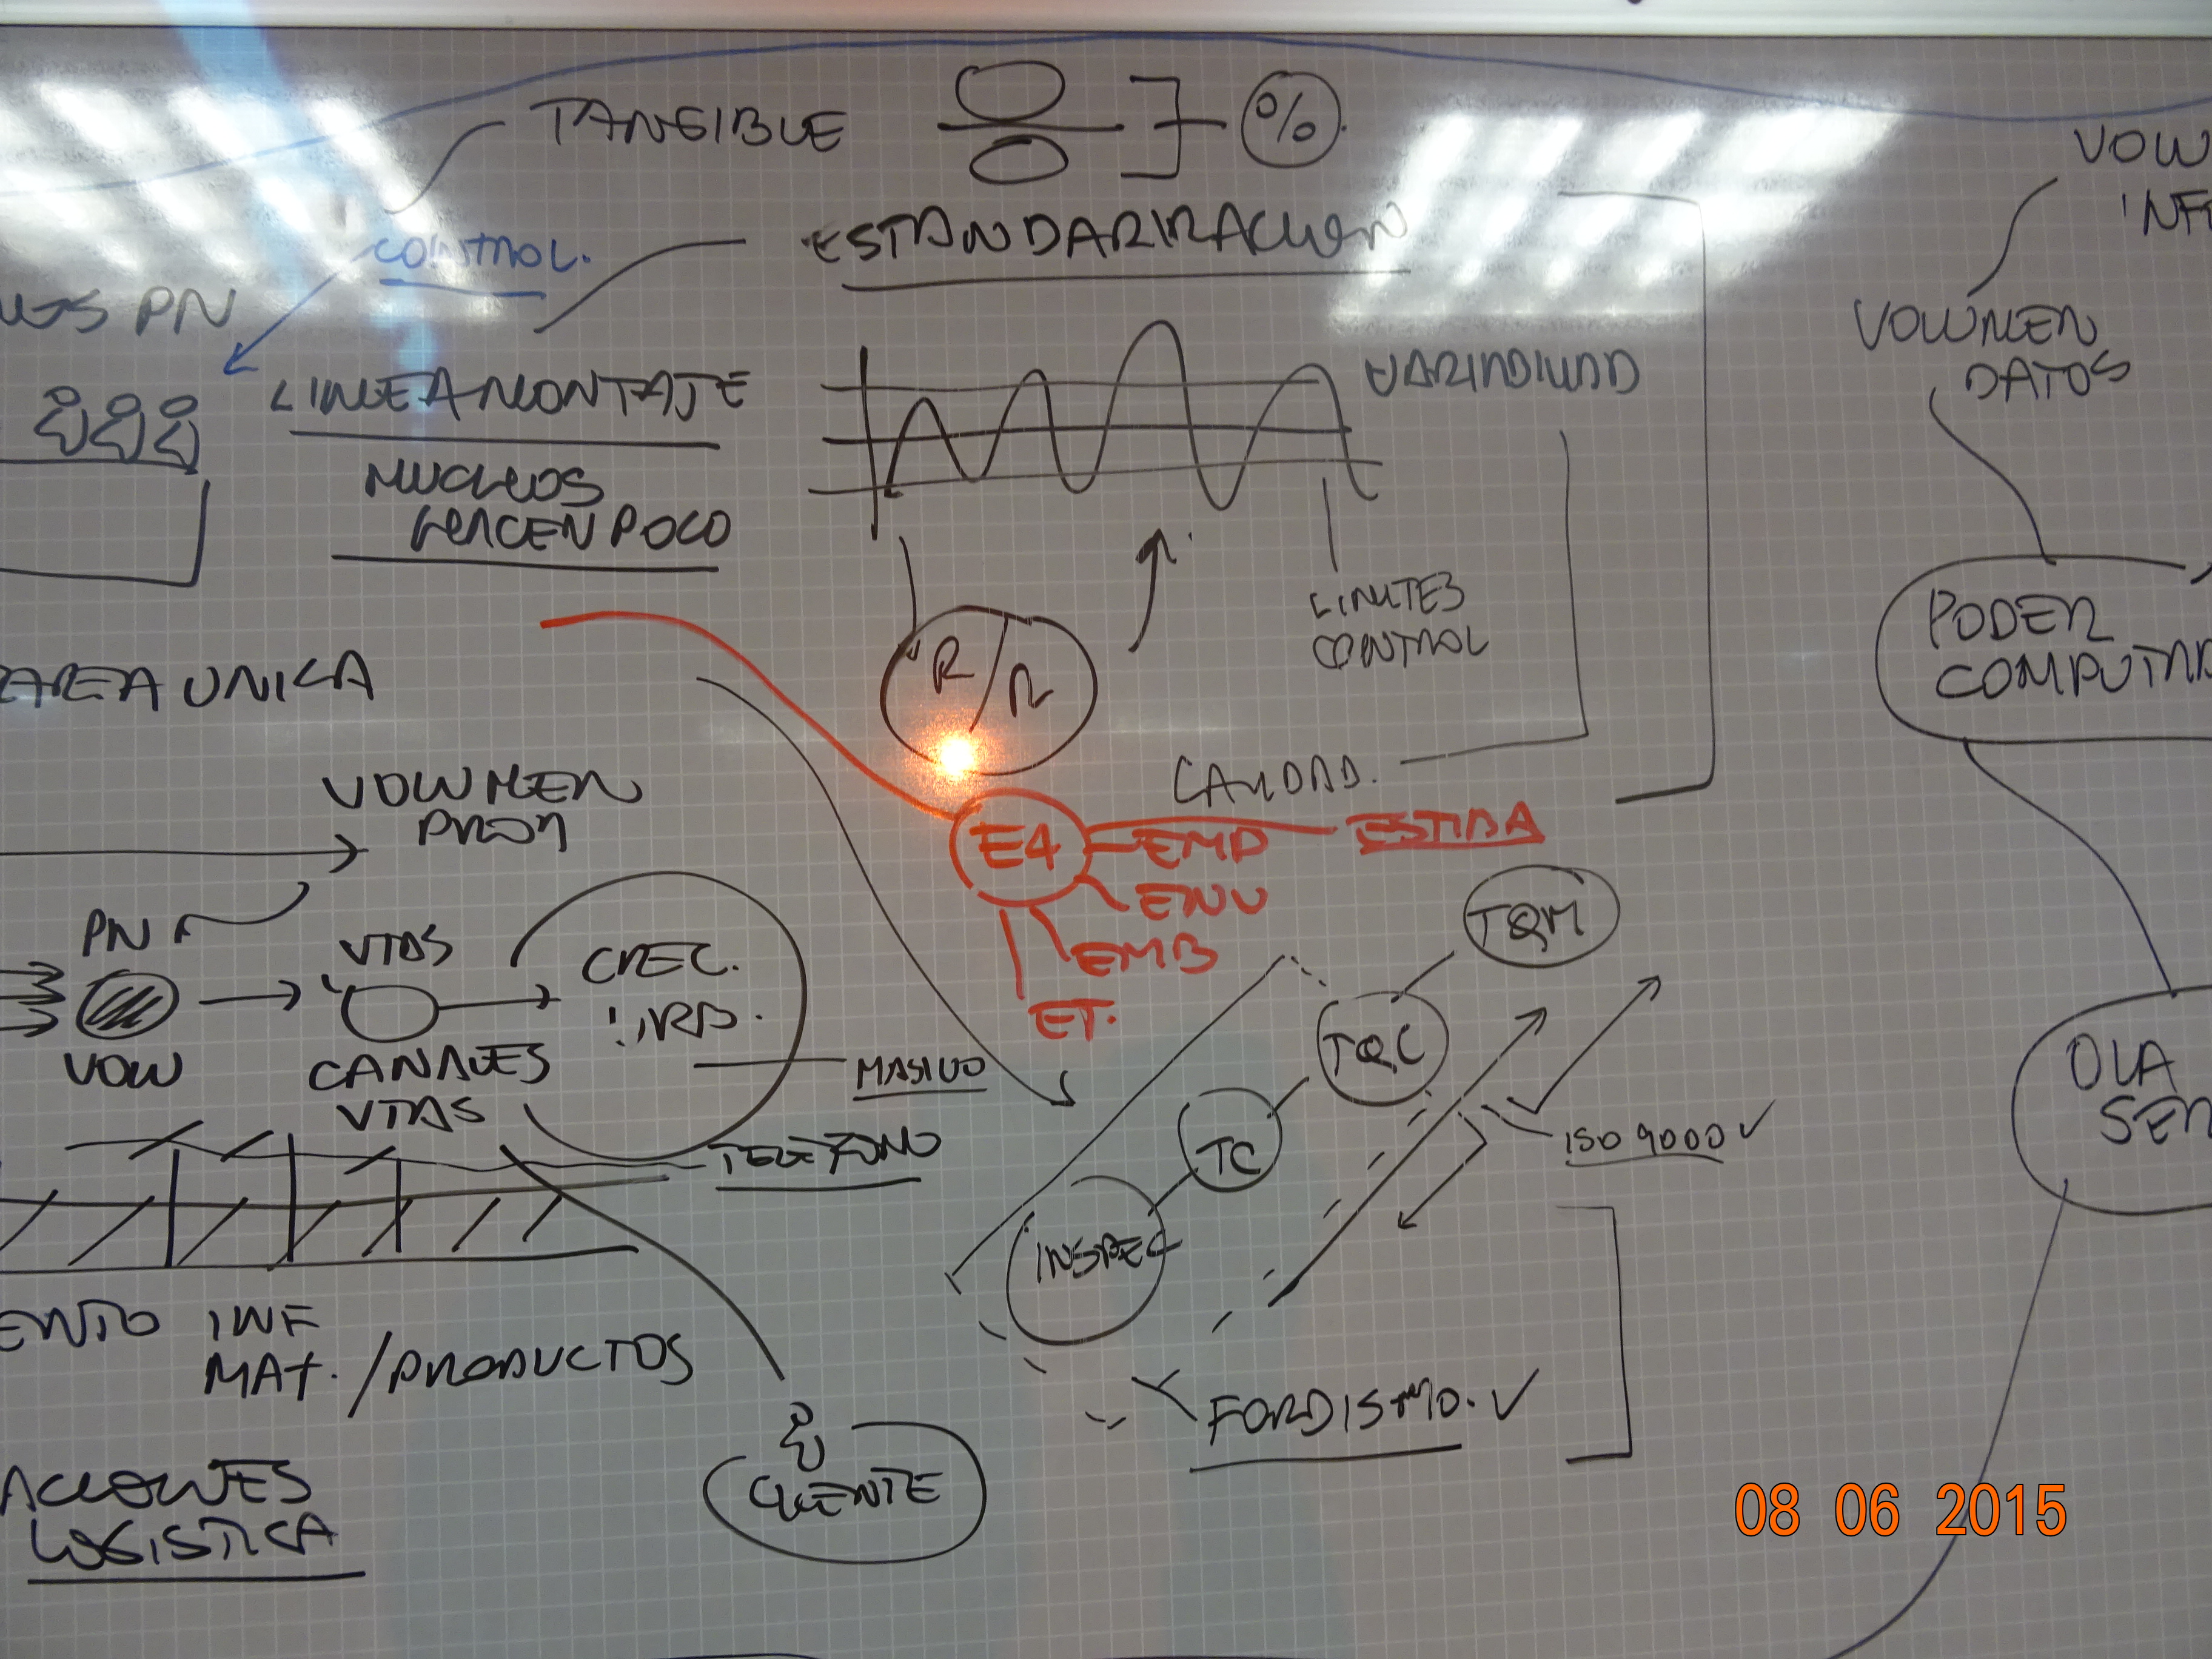 TANGIBLE
%
ESTANDARIZACION
CONTROL.
PN
LINEA MONTAJE
MUCHOS
HACEN POCO
VARIABILIDAD
LIMITES
CONTROL
R/R
AREA UNICA
CALIDAD.
E4
EMP
ESTIBA
ENV
EMB
ET.
VOLUMEN
PN
VOL
VTAS
CANALES
VTAS
CREC.
MASIVO
TELEFONO
TQM
TQC
TC
INSPEC
ISO 9000 ✓
FORDISMO. ✓
ENTO INF
MAT. / PRODUCTOS
ACIONES
LOGISTICA
CLIENTE
VOLU
INF
VOLUMEN
DATOS
PODER
COMPUTA
OLA
SEN
08 06 2015